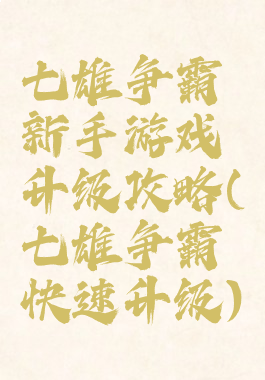 七雄争霸
新手游戏
升级攻略(
七雄争霸
快速升级)